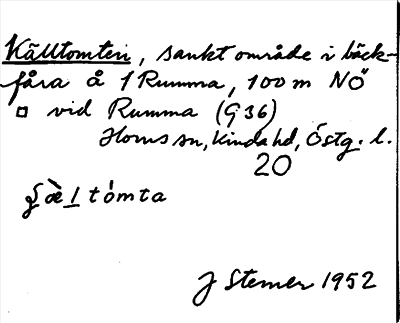 Källtomten, sankt område i bäck-
fåra å 1 Rumma, 100 m NÖ
□ vid Rumma (G 36)
Horns sn, Kinda hd, Östg. l.
20
J Sterner 1952